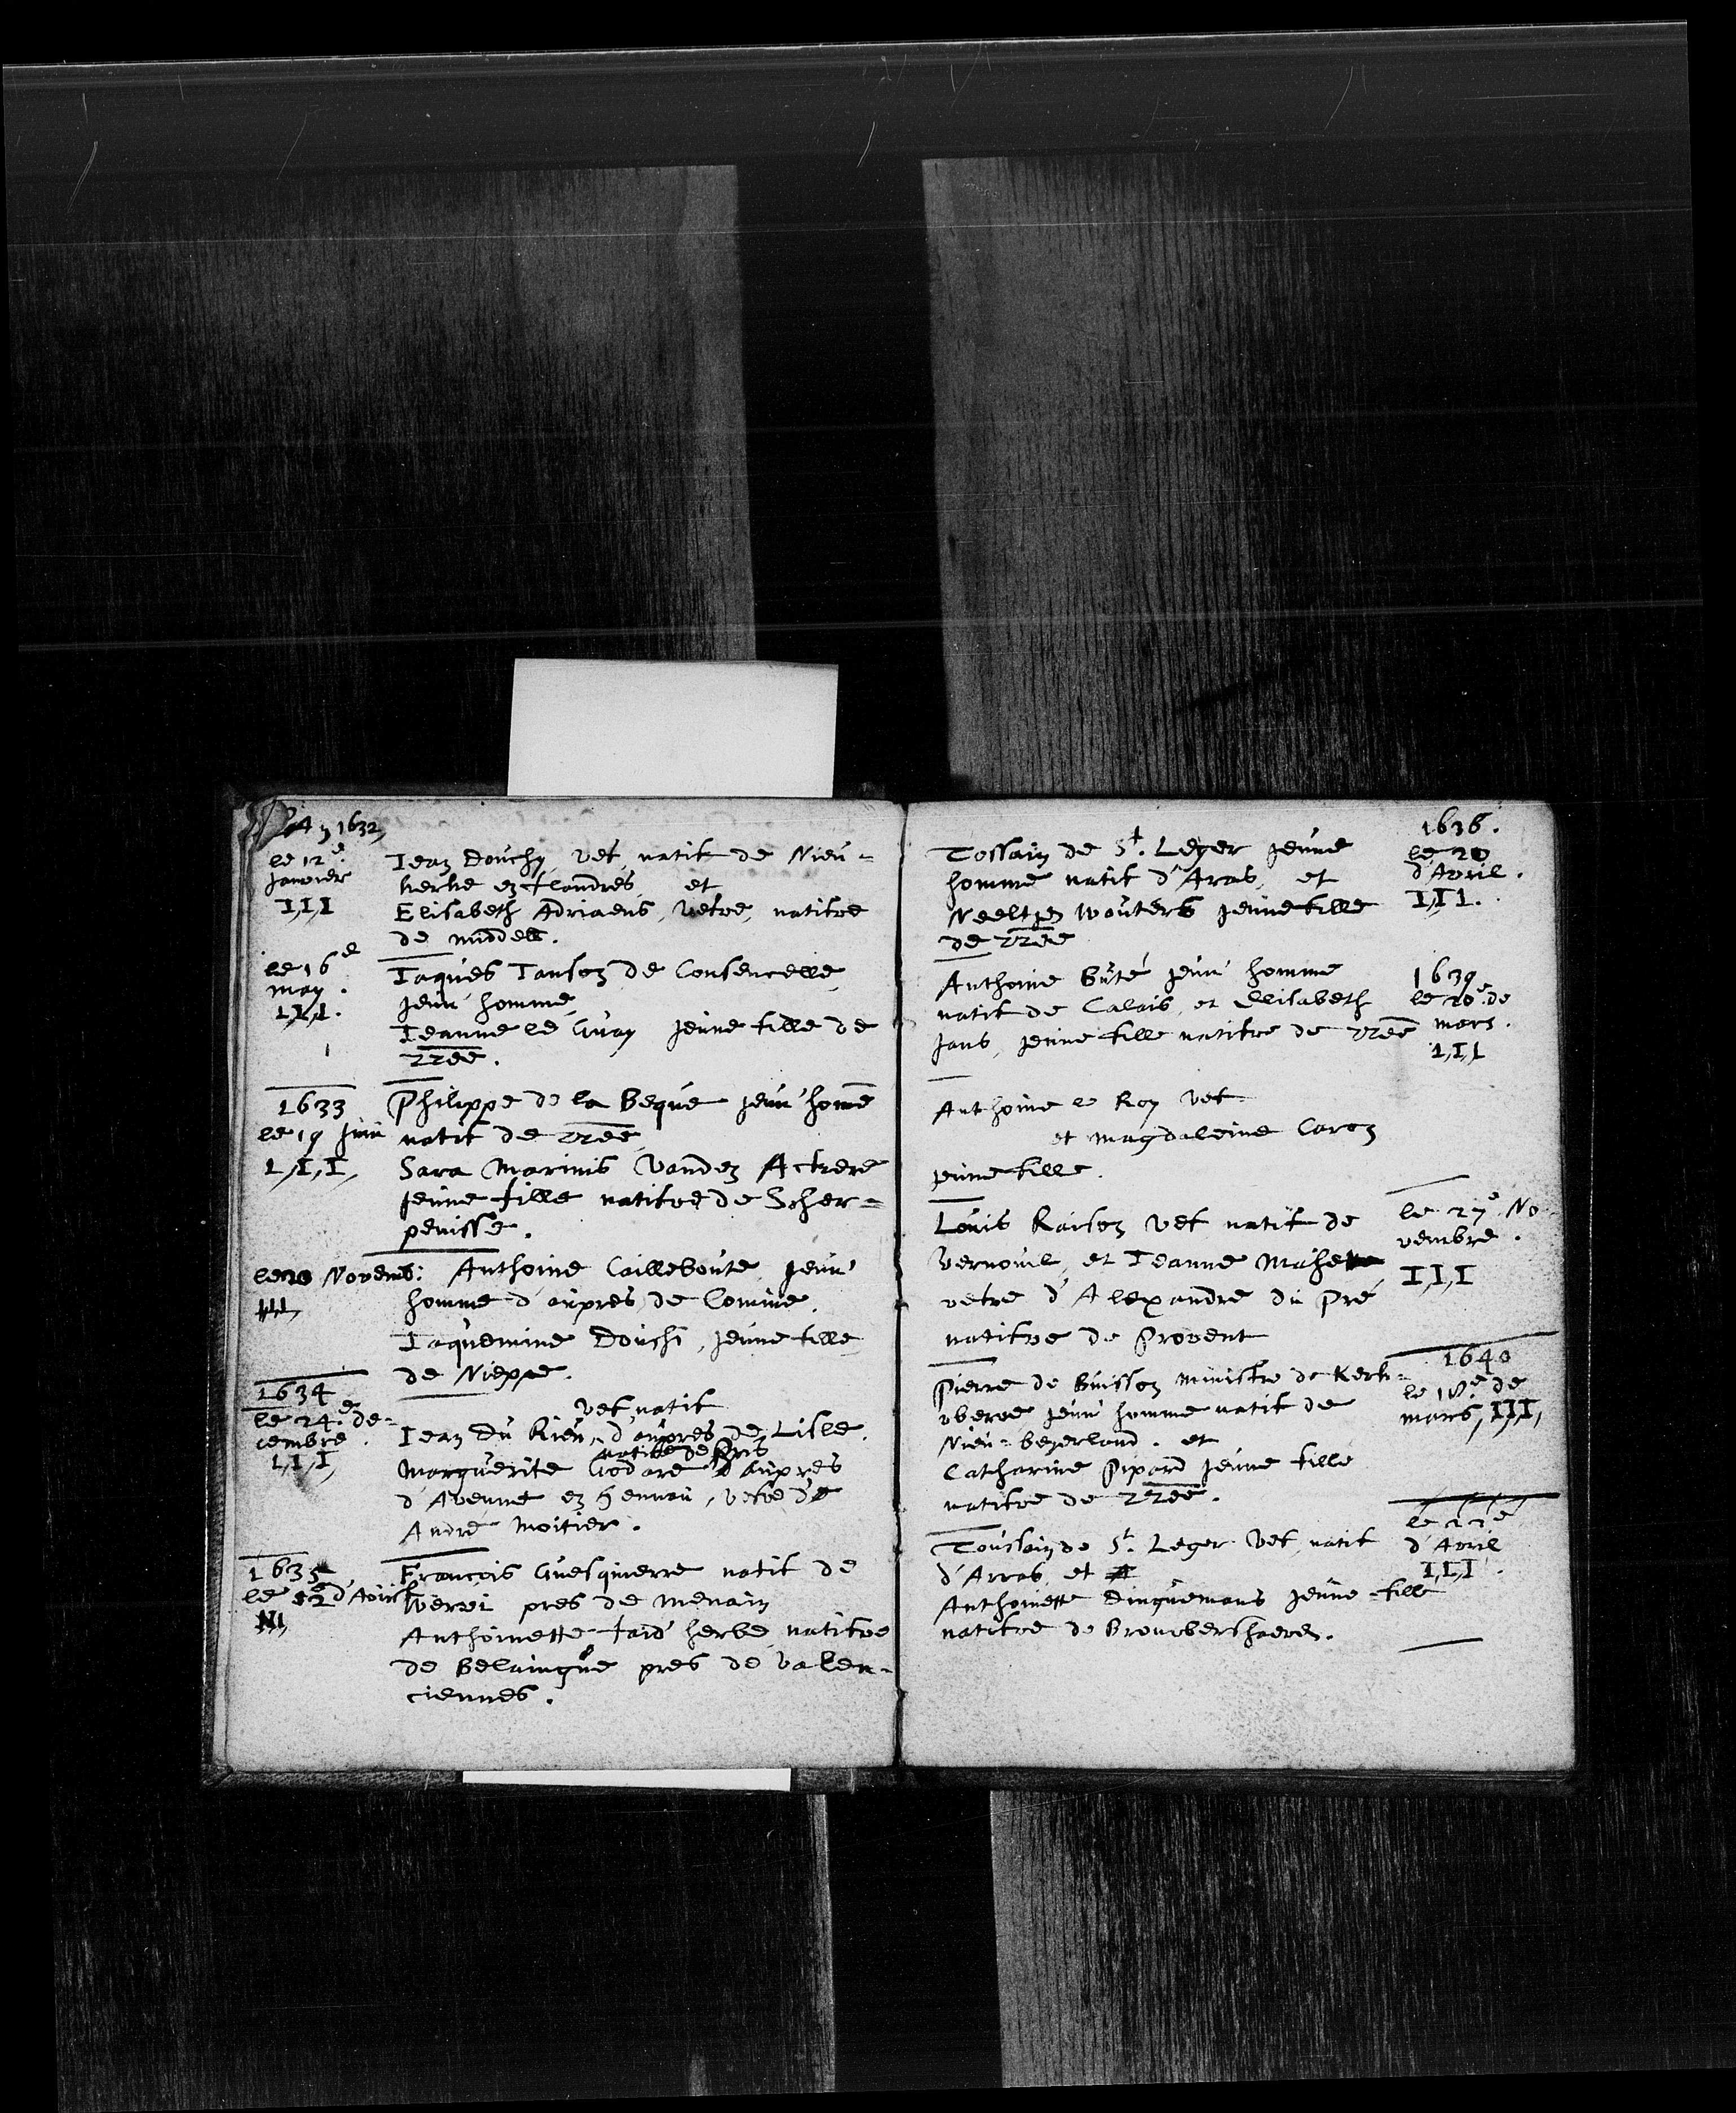 An 1632,
le 12e.
Janvier
I,I,I
Jean Douchy vef, natif de Nieu-
kerke en flandres, et
Elisabeth Adriaens, vefve, natifve
de middelb.
le 16e
may.
1,I,1.
Jaques Janson de Consencelle,
jeun' homme,
Jeanne le Guay jeune fille de
zzee.
1633
le 19 Juin
1,I,I,
Philippe de la Beque jeun' home
natif de zzee,
Sara Marinis vanden Actrere
jeune fille natifve de Scher-
penisse.
le 20 Novemb:
III,
Anthoine Cailleboute, jeun'
homme d'aupres de Comine.
Jaquemine Douchi, jeune fille
de Nieppe.
1634
le 24e. de-
cembre.
1,I,I,
vef natif
Jean du Rieu, d'aupres de Lisle.
natifve de
Marguerite Godare d'aupres
d'Avenne en hennau, vefve de
André Moitier.
1635
le 12e d'Aoust
III,
François Guesquierre natif de
Wervi pres de Menain
Anthoinette faid'herbe, natifve
de Belaingue pres de Valen-
ciennes.
1636.
le 20
d'Avril.
I,I1.
Tossain de St. Leger jeune
homme natif d'Aras, et
Neeltjen Wouters jeune fille
de zzee
1639
le 20e. de
mars.
1,I,1
Anthoine Buté jeun' homme
natif de Calais, et Elisabeth
Jans, jeune fille natifve de zzee
Anthoine le Roy vef
et Magdaleine Caron
jeune fille.
le 27e No-
vembre.
I,I,I
Louis Raison vef natif de
Vernouil, et Jeanne Mahe
vefve d'Alexandre du Pré
natifve de Provent
1640
le 18e de
mars, III,
Pierre de Buisson ministre de Kerk-
verve jeun' homme natif de
Nieu-beyerland. et
Catharine Pipard jeune fille
natifve de zzee.
le 11e
d'Avril
I,I,I.
Toussain de St. Leger vef, natif
d'Arras, et
Anthoinette Dinguemans jeune fille
natifve de Brouwershaven.